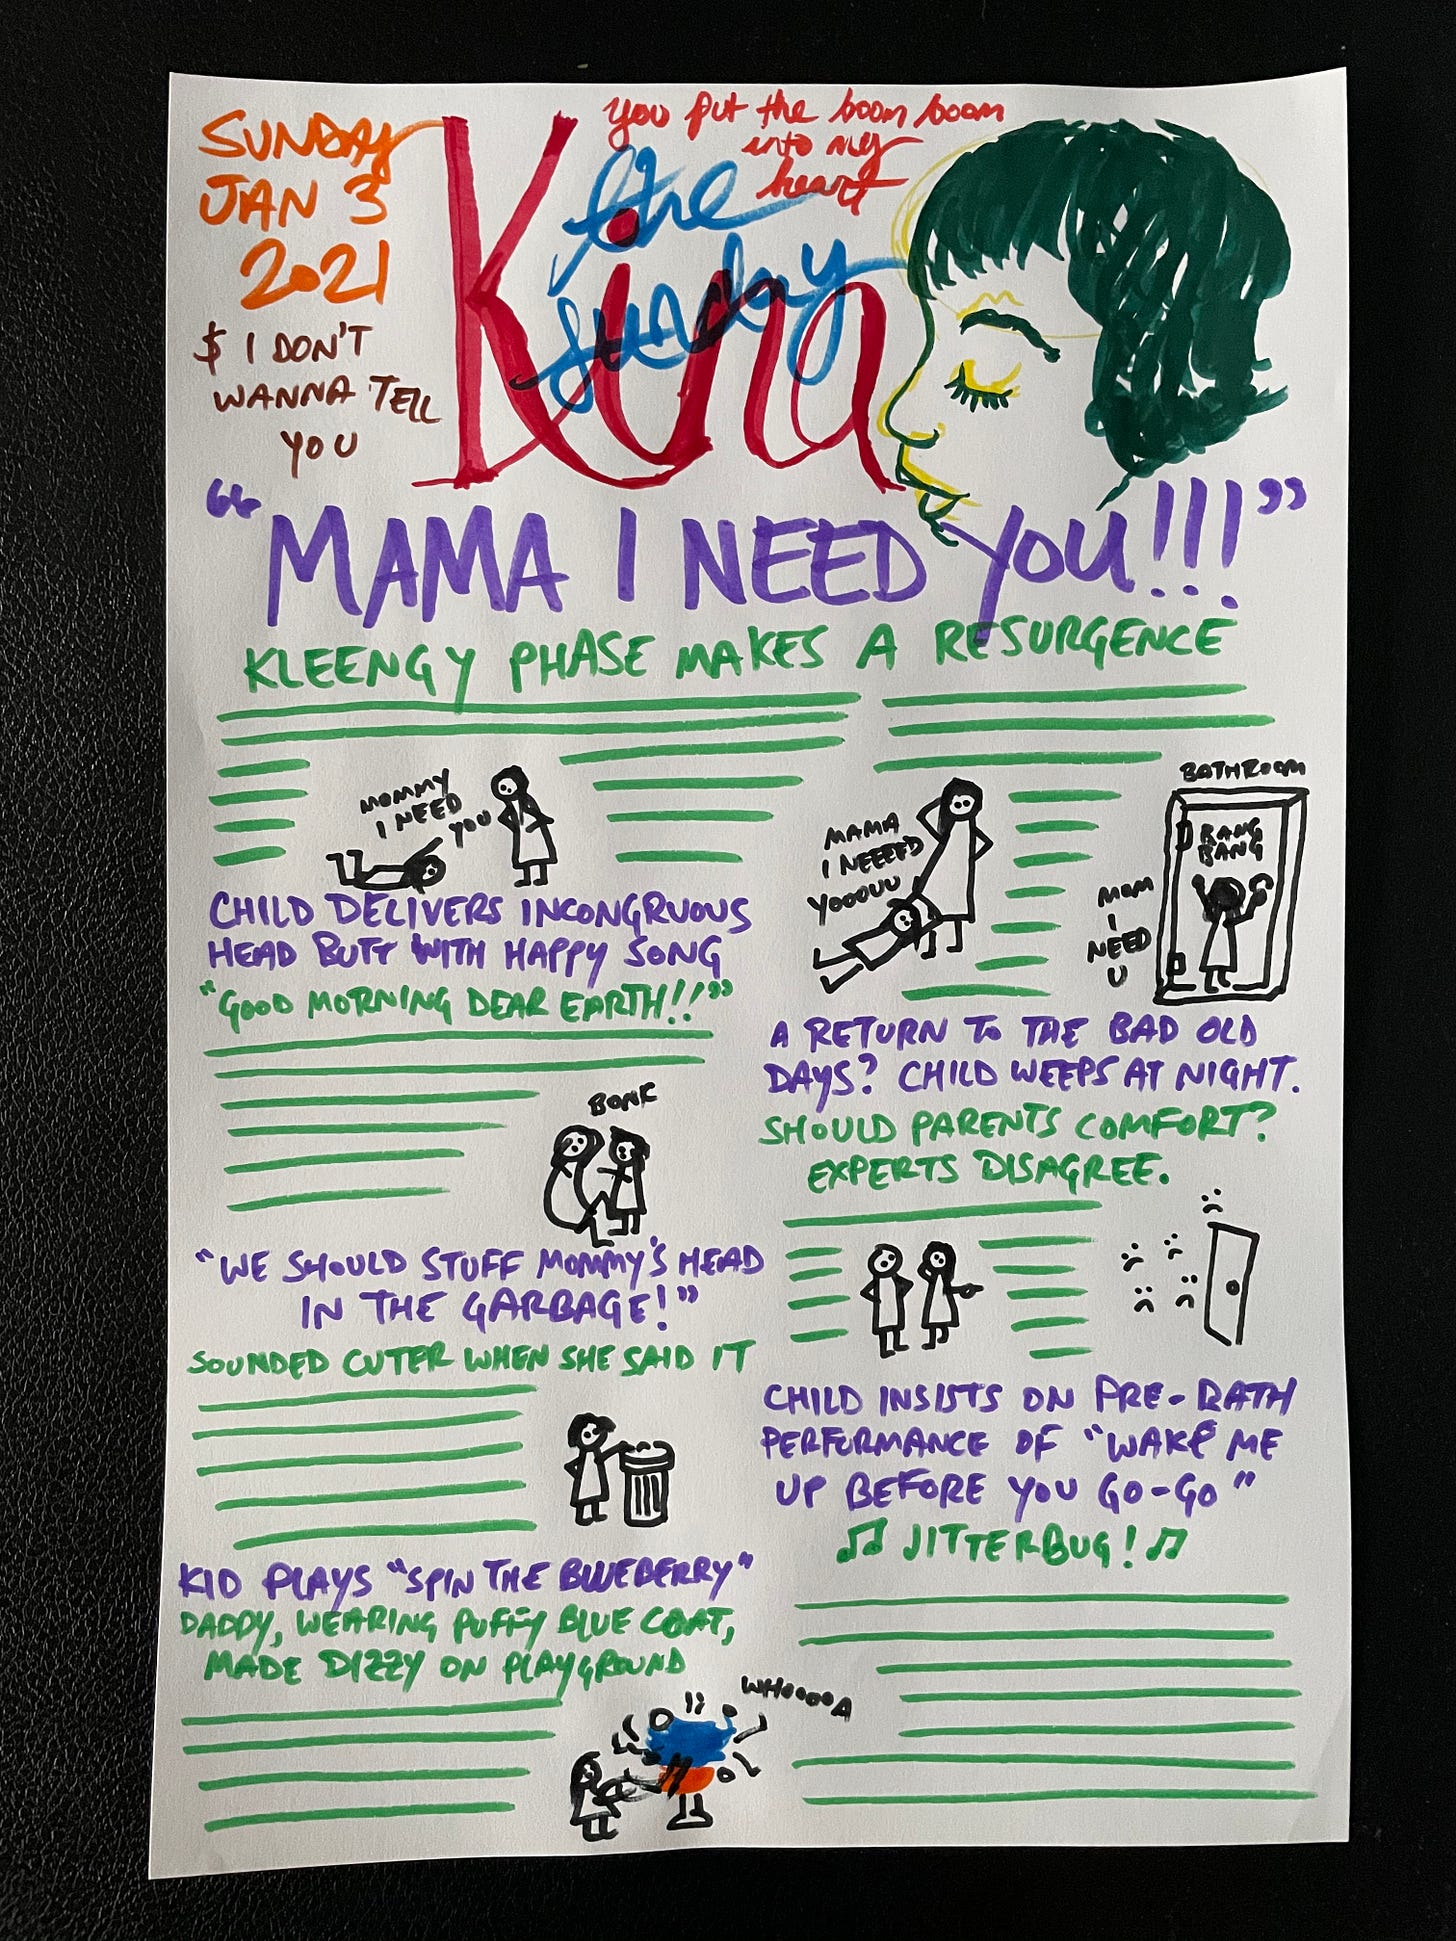 SUNDAY
JAN 3
2021
$ I DON'T
WANNA TELL
YOU
you put the boom boom
into my
heart
the
sunday
Kina
"MAMA I NEED YOU!!!"
KLEENGY PHASE MAKES A RESURGENCE
MOMMY
I NEED
YOU
CHILD DELIVERS INCONGRUOUS
HEAD BUTT WITH HAPPY SONG
"GOOD MORNING DEAR EARTH!!"
BONK
"WE SHOULD STUFF MOMMY'S HEAD
IN THE GARBAGE!"
SOUNDED CUTER WHEN SHE SAID IT
KID PLAYS "SPIN THE BLUEBERRY"
DADDY, WEARING PUFFY BLUE COAT,
MADE DIZZY ON PLAYGROUND
WHOOOOA
MAMA
I NEEEED
YOOOUU
BATHROOM
BANG
BANG
MOM
I
NEED
U
A RETURN TO THE BAD OLD
DAYS? CHILD WEEPS AT NIGHT.
SHOULD PARENTS COMFORT?
EXPERTS DISAGREE.
CHILD INSISTS ON PRE-BATH
PERFORMANCE OF "WAKE ME
UP BEFORE YOU GO-GO"
♫ JITTERBUG! ♫